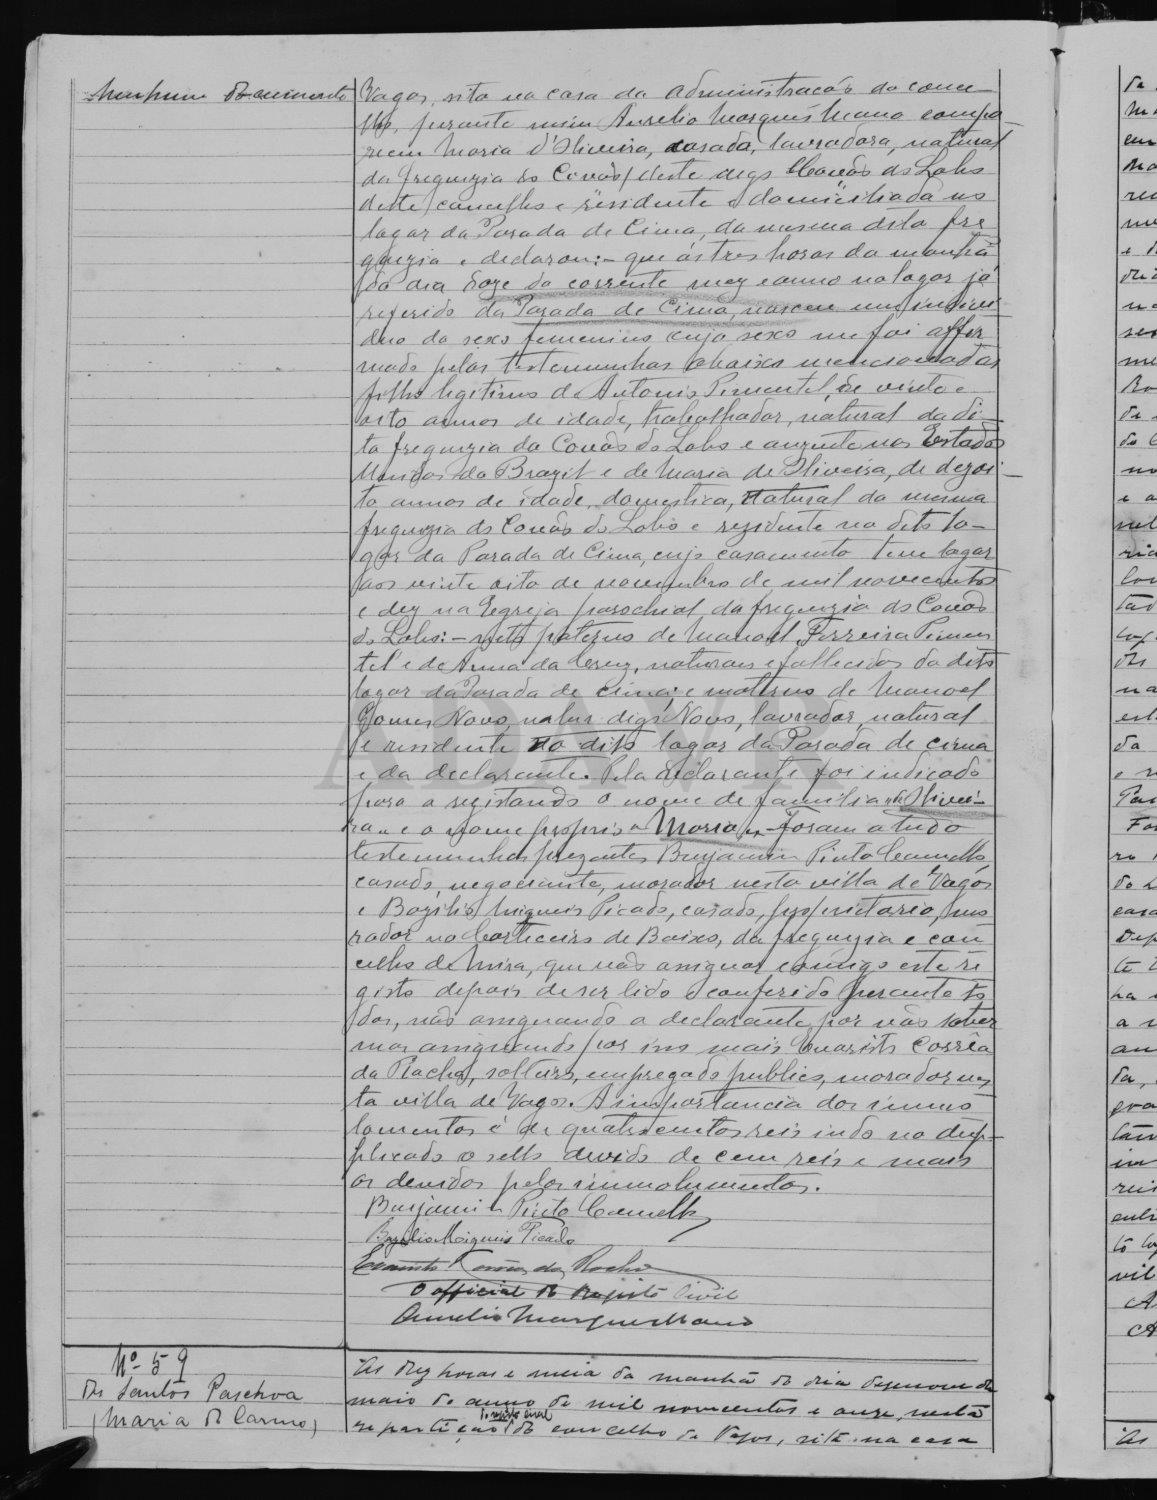 Nenhum documento
Vagos, sita na casa da administração do conce-
lho, perante mim Aurelio Marques Mano compa-
receu Maria d'Oliveira, casada, lavradora, natural
da freguezia de Covão, deste digo Covão do Lobo
deste concelho e residente e domiciliada no
logar da Parada de Cima, da mesma dita fre
guezia e declarou:- que ás tres horas da manhã
do dia doze do corrente mez e anno no logar já
referido da Parada de Cima, nasceu um indivi
duo do sexo femenino cujo sexo me foi affir
mado pelas testemunhas abaixo mencionadas
filho legitimo de Antonio Pimentel, de vinte e
oito annos de idade, trabalhador, natural da di-
ta freguezia do Covão do Lobo e auzente nos Estados
Unidos do Brazil e de Maria de Oliveira, de dezoi-
to annos de idade, domestica, natural da mesma
freguezia do Covão do Lobo e rezidente no dito lo-
gar da Parada de Cima, cujo casamento teve logar
aos vinte oito de novembro de mil novecentos
e dez na Egreja parochial da freguezia do Covão
do Lobo:- neto paterno de Manoel Ferreira Pimen
tel e de Anna da Cruz, naturaes e fallecidos do dito
logar da Parada de cima; e materno de Manoel
Gomes Novo, natur digo Novo, lavrador, natural
e residente no dito logar da Parada de cima
e da declarante. Pela declarante foi indicado
para a registando o nome de familia "de Olivei-
ra" e o nome proprio "Maria". Foram a tudo
testemunhas prezentes Benjamin Pinto Camello,
casado, negociante, morador nesta villa de Vagos
e Bazilio Migueis Picado, casado, proprietario, mo
rador no Corticeiro de Baixo, da freguezia e con
celho de Mira, que vão assignar comigo este re
gisto depois de ser lido e conferido perante to
dos, não assignando a declarante por não saber
mas assignando por ins mais Evaristo Corrêa
da Rocha, solteiro, empregado publico, morador nes
ta villa de Vagos. A importancia dos immo
lumentos é de quatrocentos reis indo no dup-
plicado o sello devido de cem reis e mais
os devidos pelos immolumentos.
Benjamin Pinto Camello
Bazilio Migueis Picado
Corrêa da Rocha
O official do Registo Civil
Aurelio Marques Mano
Nº 59
Dos Santos Paschoa
(Maria do Carmo)
As dez horas e meia da manhã do dia dezenove de
maio do anno de mil novecentos e onze, nesta
do registo civil
repartição do concelho de Vagos, sita na casa
ADAVR